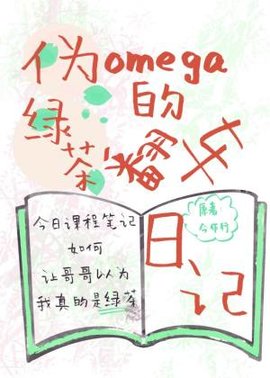 伪omega
的
绿茶翻车
日记
今日课程笔记
如何
让哥哥以为
我真的是绿茶
原著